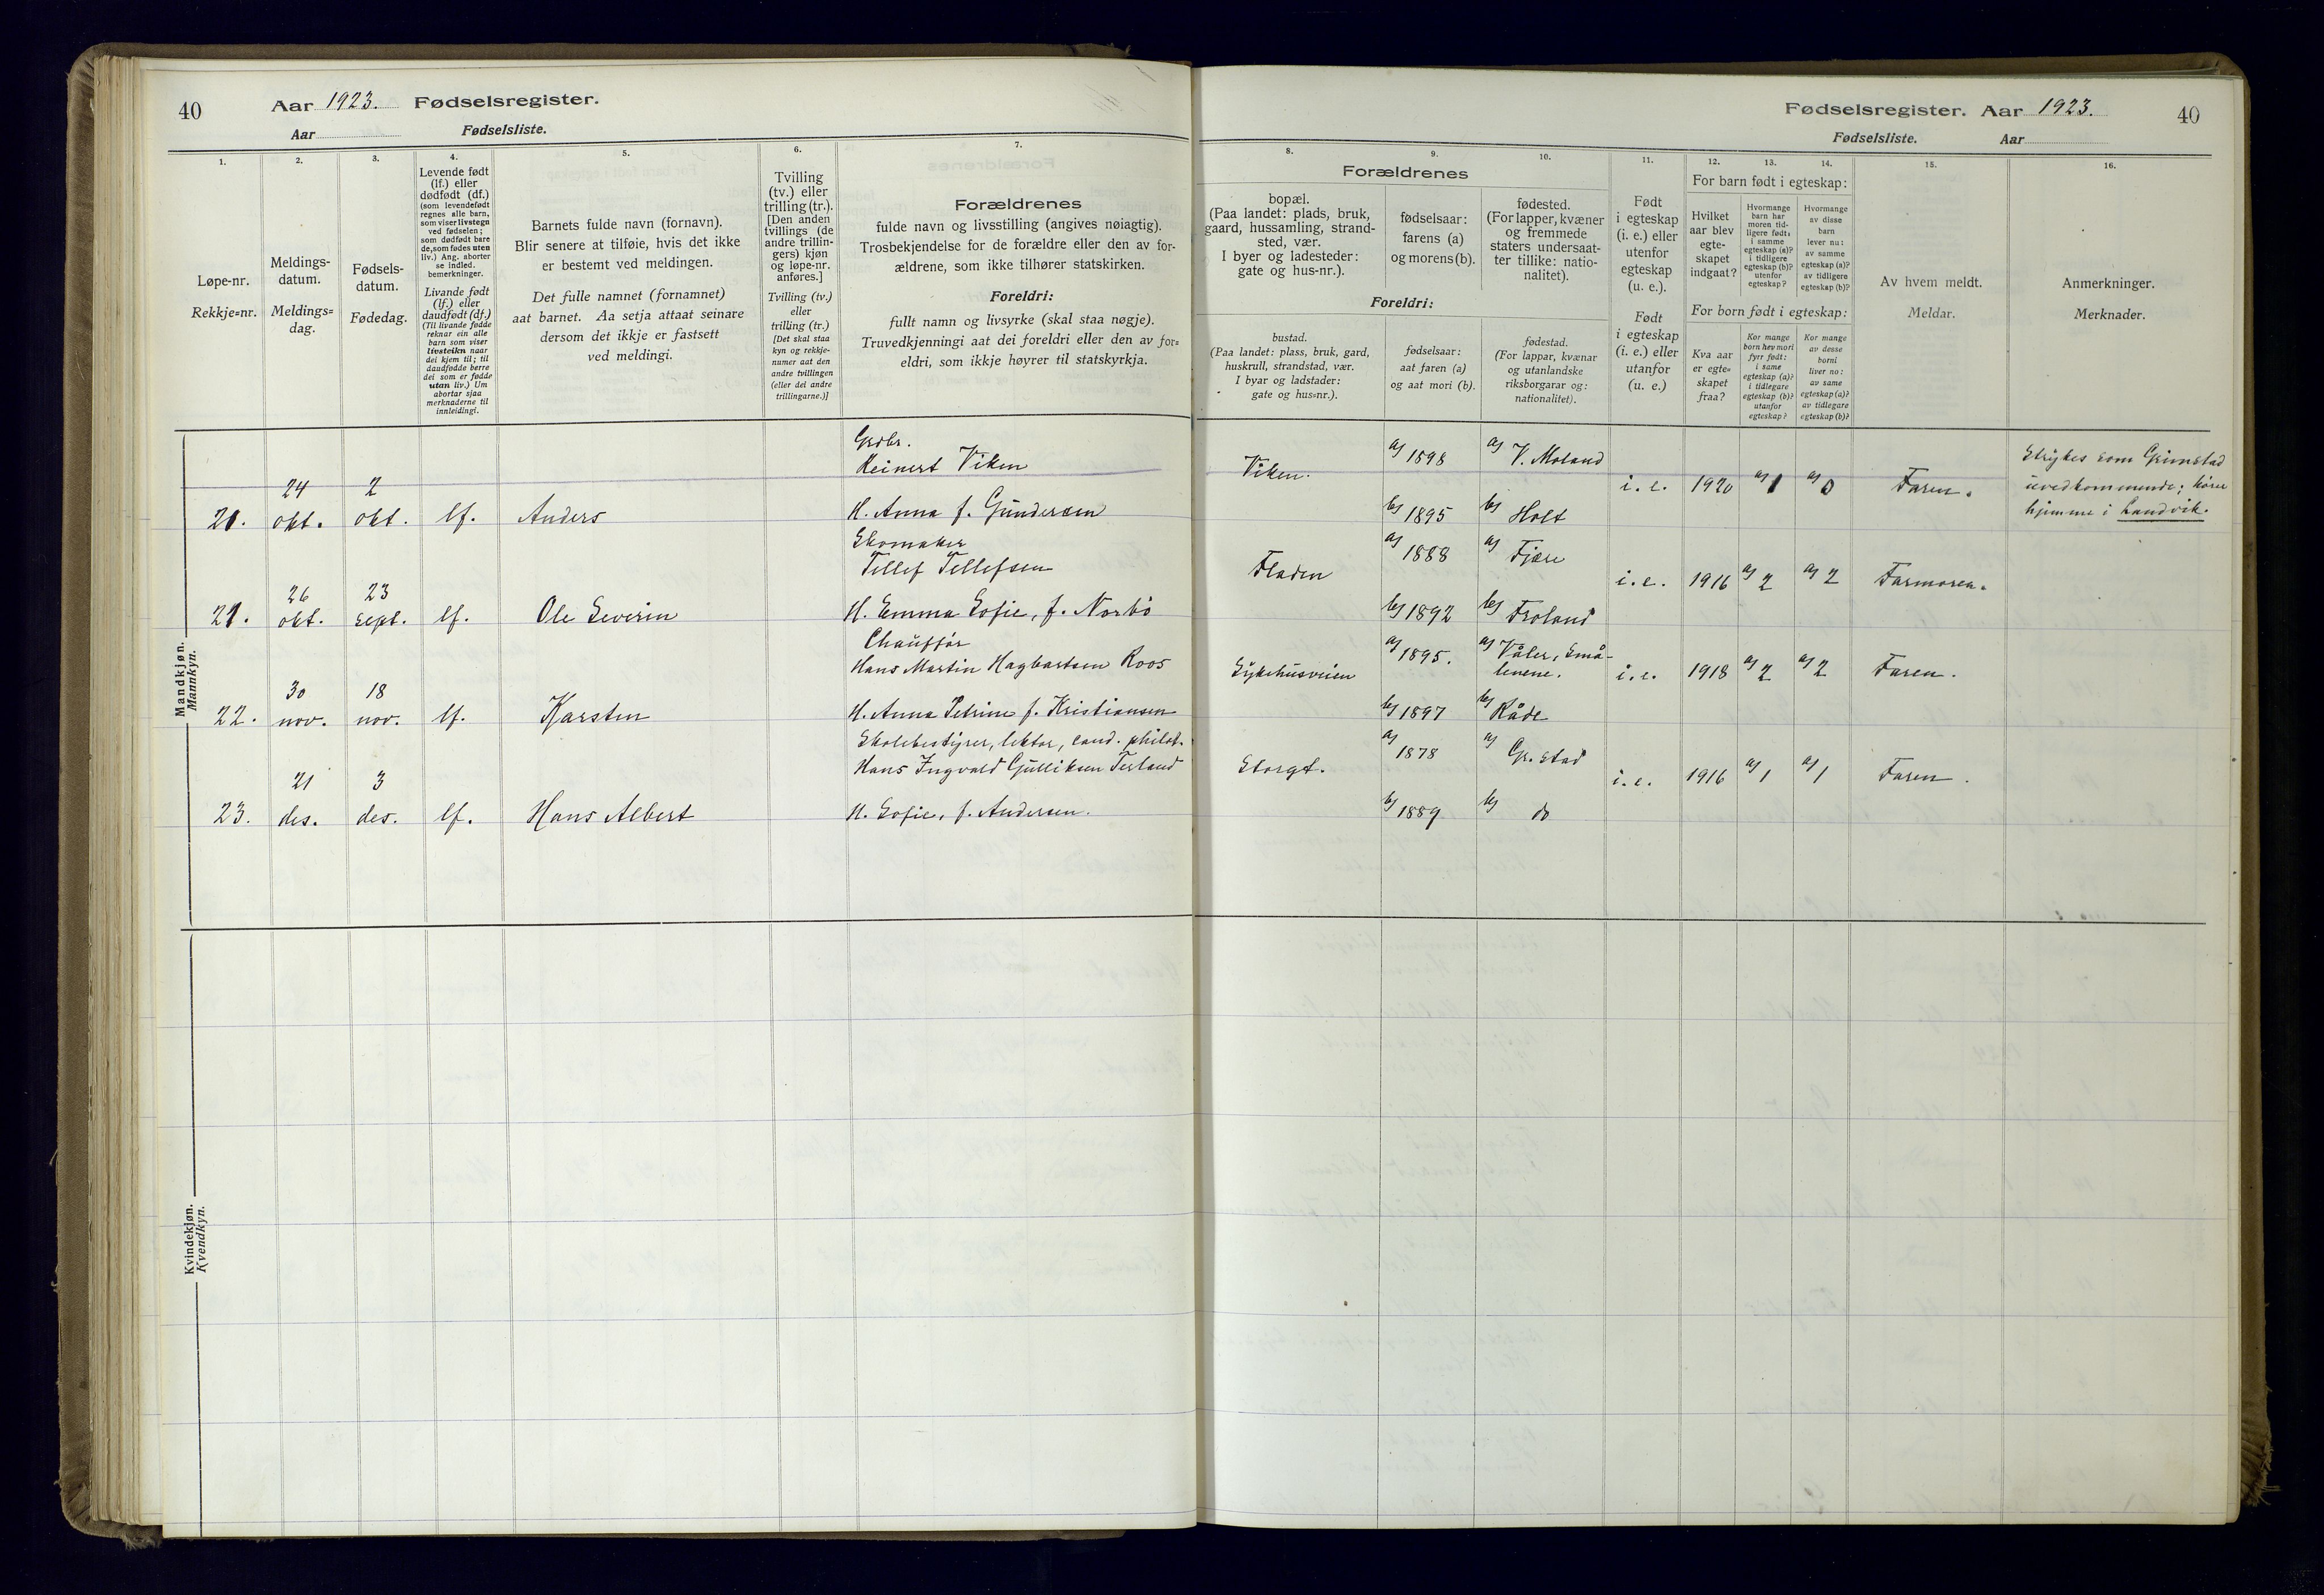 40 Aar 1923. Fødselsregister.
Aar Fødselsliste.
1.
2.
3.
4.
5.
6.
7.
Løpe-nr.
Rekkje=nr.
Meldings-
datum.
Meldings=
dag.
Fødsels-
datum.
Fødedag.
Levende født
(lf.) eller
dødfødt (df.)
(som levendefødt
regnes alle barn,
som viser livstegn
ved fødselen;
som dødfødt bare
de, som fødes uten
liv.) Ang. aborter
se indled.
bemerkninger.
Livande født
(lf.) eller
daudfødt (df.)
(Til livande fødde
reknar ein alle
barn som viser
livsteikn naar
dei kjem til; til
daudfødde berre
dei som er fødde
utan liv.) Um
abortar sjaa
merknaderne til
innleidingi.
Barnets fulde navn (fornavn).
Blir senere at tilføie, hvis det ikke
er bestemt ved meldingen.
Det fulle namnet (fornamnet)
aat barnet. Aa setja attaat seinare
dersom det ikkje er fastsett
ved meldingi.
Tvilling
(tv.) eller
trilling (tr.).
[Den anden
tvillings (de
andre trillin-
gers) kjøn
og løpe-nr.
anføres.]
Tvilling (tv.)
eller
trilling (tr.)
[Det skal staa
kyn og rekkje-
numer aat den
andre tvillingen
(eller dei andre
trillingarne.)]
Forældrenes
fulde navn og livsstilling (angives nøiagtig).
Trosbekjendelse for de forældre eller den av for-
ældrene, som ikke tilhører statskirken.
Foreldri:
fullt namn og livsyrke (skal staa nøgje).
Truvedkjenningi aat dei foreldri eller den av for=
eldri, som ikkje høyrer til statskyrkja.
Mandkjøn.
Mannkyn.
Grdbr.
Reinert Viken
24 2
21. okt. okt. lf. Anders H. Anna f. Gundersen
Skomaker
Tellef Tellefsen
26 23
21. okt. sept. lf. Ole Severin H. Emma Sofie, f. Norbø
Chauffør
Hans Martin Hagbartsen Roos
30 18
22. nov. nov. lf. Karsten H. Anna Petrine f. Kristiansen
Skolebestyrer, lektor, cand. philol.
Hans Ingvald Gulliksen Terland
21 3
23. des. des. lf. Hans Albert H. Sofie, f. Andersen.
Kvindekjøn.
Kvendkyn.
Fødselsregister. Aar 1923. 40
Fødselsliste. Aar
8.
9.
10.
11.
12.
13.
14.
15.
16.
Forældrenes
bopæl.
(Paa landet: plads, bruk,
gaard, hussamling, strand-
sted, vær.
I byer og ladesteder:
gate og hus-nr.).
fødselsaar:
farens (a)
og morens (b).
fødested.
(For lapper, kvæner
og fremmede
staters undersaat-
ter tillike: natio-
nalitet).
Foreldri:
bustad.
(Paa landet: plass, bruk, gard,
huskrull, strandstad, vær.
I byar og ladstader:
gate og hus=nr.).
fødselsaar:
aat faren (a)
og aat mori (b).
fødestad.
(For lappar, kvænar
og utanlandske
riksborgarar og:
nationalitet).
Født
i egteskap
(i. e.) eller
utenfor
egteskap
(u. e.).
Født
i egteskap
(i. e.) eller
utanfor
(u. e.)
For barn født i egteskap:
Hvilket
aar blev
egte-
skapet
indgaat?
Hvormange
barn har
moren tid-
ligere født:
i samme
egteskap (a)?
i tidligere
egteskap (b)?
utenfor
egteskap?
Hvormange
av disse
barn
lever nu:
av samme
egteskap (a)?
av tidligere
egteskap (b)?
For born født i egteskap:
Kva aar
er egte=
skapet
fraa?
Kor mange
born hev mori
fyrr født:
i same
egteskap (a)?
i tidlegare
egteskap (b)?
utanfor
egteskap?
Kor mange
av desse
borni
liver no:
av same
egteskap (a)?
av tidlegare
egteskap (b)?
Av hvem meldt.
Meldar.
Anmerkninger.
Merknader.
Viken. a) 1898 a) V. Moland i. e. 1920 a) 1 a) 0 Faren. Strykes som Grimstad
uvedkommende; hører
hjemme i Landvik.
b) 1895 b) Holt
Fladen a) 1888 a) Fjære i. e. 1916 a) 2 a) 2 Farmoren.
b) 1892 b) Froland
Sykehusveien a) 1895. a) Våler, Små-
lenene. i. e. 1918 a) 2 a) 2 Faren.
b) 1897 b) Råde
Storgt. a) 1878 a) Gr.stad i. e. 1916 a) 1 a) 1 Faren.
b) 1889 b) do